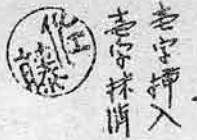 壱字挿入
壱字抹消
佐藤